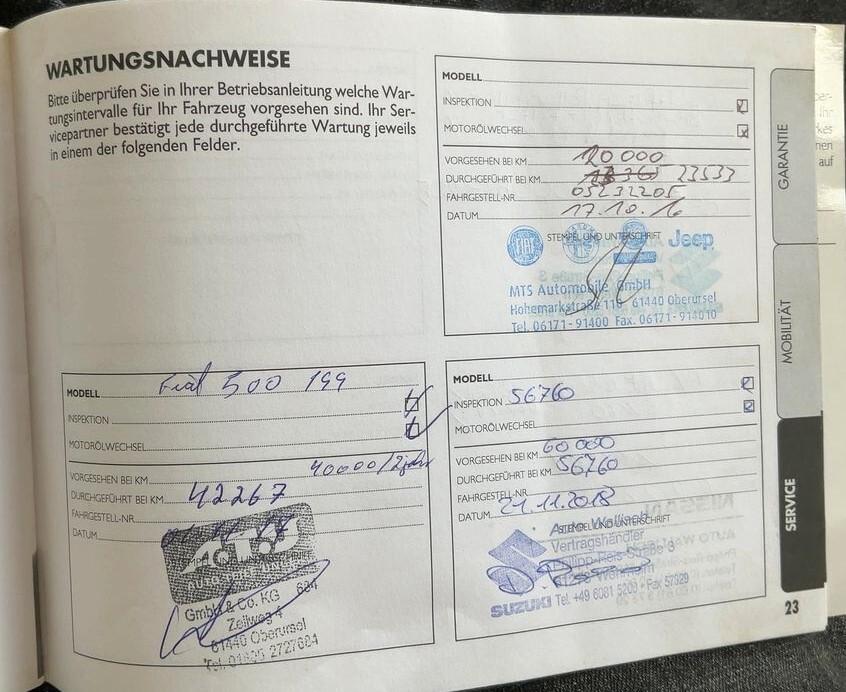 WARTUNGSNACHWEISE
Bitte überprüfen Sie in Ihrer Betriebsanleitung welche War-
tungsintervalle für Ihr Fahrzeug vorgesehen sind. Ihr Ser-
vicepartner bestätigt jede durchgeführte Wartung jeweils
in einem der folgenden Felder.
MODELL
INSPEKTION
MOTORÖLWECHSEL
VORGESEHEN BEI KM 20 000
DURCHGEFÜHRT BEI KM 23533
FAHRGESTELL-NR. 05232205
DATUM 17.10.16
STEMPEL UND UNTERSCHRIFT
FIAT Jeep
MTS Automobile GmbH
Hohemarkstraße 110 61440 Oberursel
Tel. 06171-91400 Fax. 06171-914010
MODELL Fiat 500 199
INSPEKTION
MOTORÖLWECHSEL
VORGESEHEN BEI KM 40000/2jahr
DURCHGEFÜHRT BEI KM 42267
FAHRGESTELL-NR.
DATUM
GmbH & Co. KG 684
Zeilweg 4
61440 Oberursel
MODELL
INSPEKTION 56760
MOTORÖLWECHSEL
VORGESEHEN BEI KM 60 000
DURCHGEFÜHRT BEI KM 56760
FAHRGESTELL-NR.
DATUM 21.11.2018
STEMPEL UND UNTERSCHRIFT
Vertragshändler
Philipp-Reis-Straße 3
SUZUKI Tel. +49 6081 5200 · Fax 57929
GARANTIE
MOBILITÄT
SERVICE
23
auf